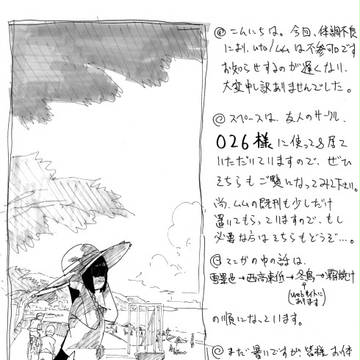 @ こんにちは。今回、体調不良
により、uto/ムムは不参加です
お知らせするのが遅くなり、
大変申し訳ありませんでした。
@ スペースは、友人のサークル、
026様に使って居て
いただいていますので、ぜひ
そちらもご覧になってみて下さい。
尚、ムムの既刊も少しだけ
置いてもらっていますので、もし
必要ならばそちらもどうぞ…。
@ そこかの中の話は、
→西高東低→冬鳥→霜焼け
webサイトに
あります
の順になっています。
@ まだ暑いですが皆様、お体